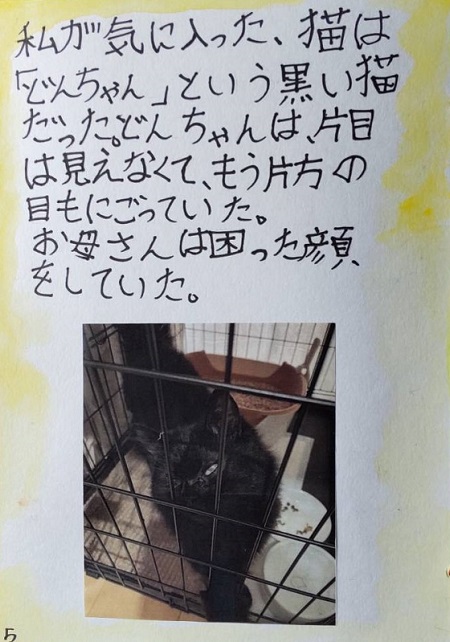 私が気に入った、猫は
「どんちゃん」という黒い猫
だった。どんちゃんは、片目
は見えなくて、もう片方の
目もにごっていた。
お母さんは困った顔、
をしていた。
5